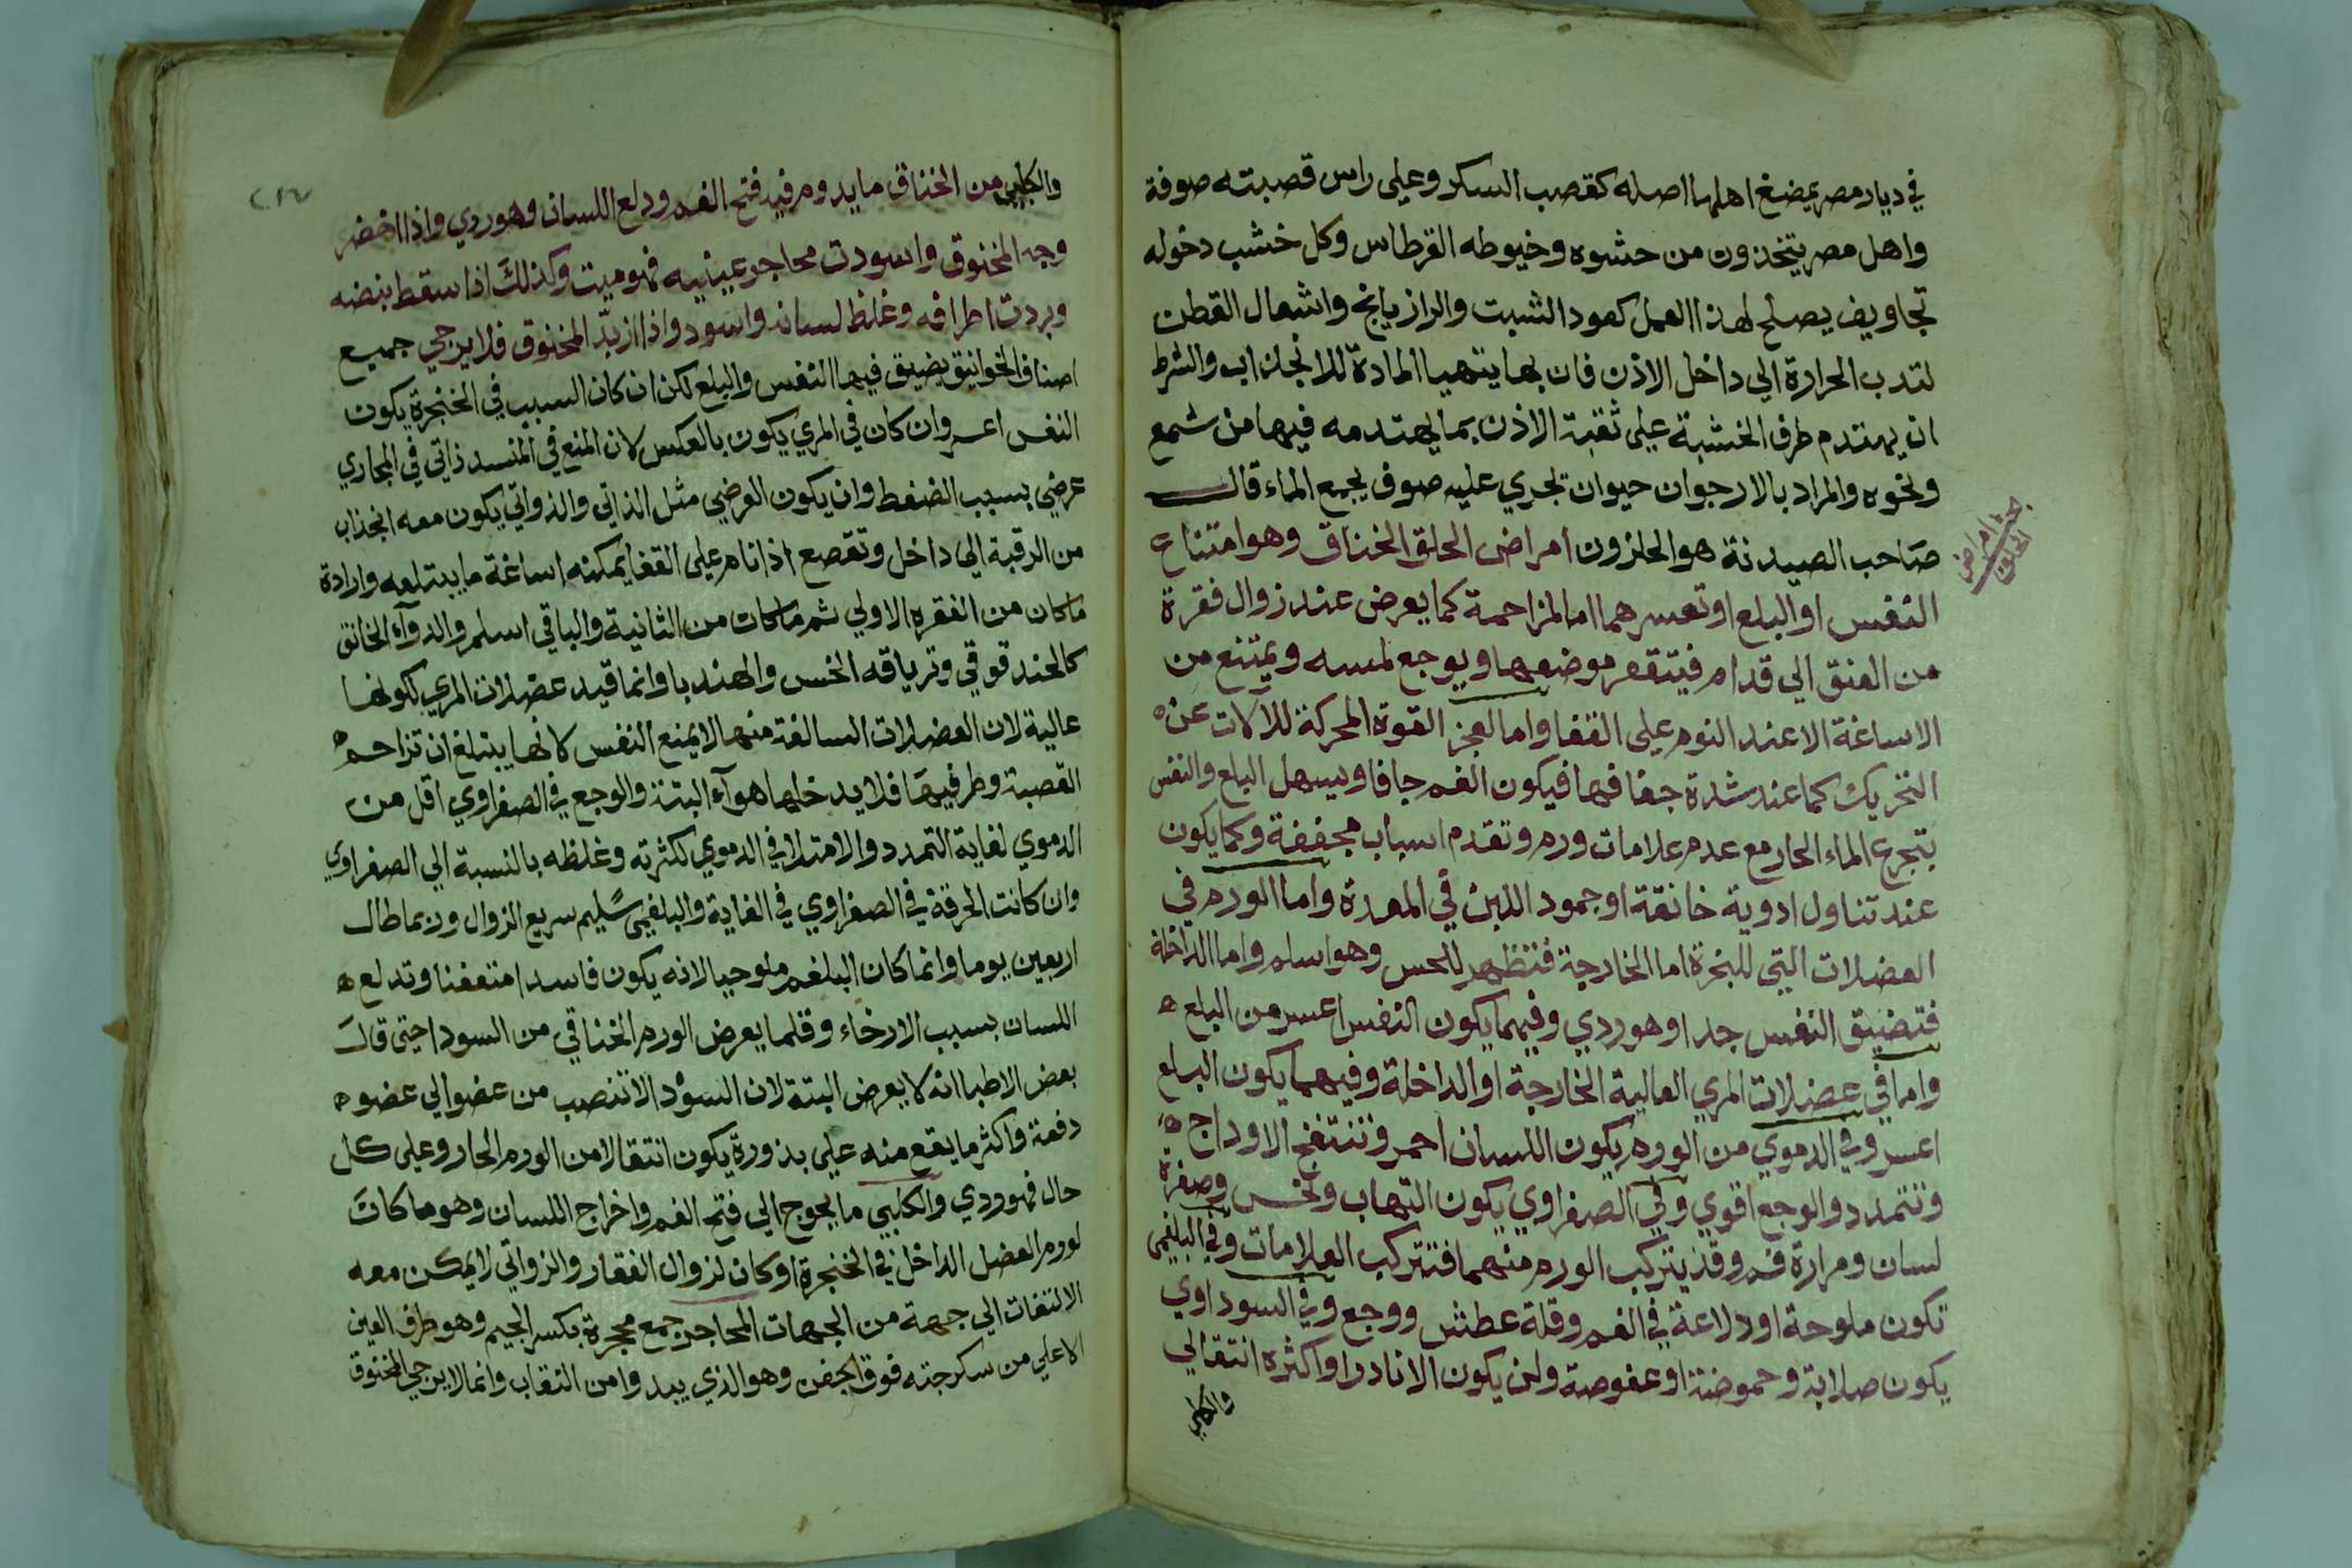 في ديار مصر يمضغ اهلها اصله كقصب السكر وعلى راس قصبته صوفة
واهل مصر يتخذون من حشوه وخيوطه القرطاس وكل خشب دخوله
تجاويف يصلح لهذا العمل كعود الشبت والرازيانج واشعال القطن
لتدب الحرارة الي داخل الاذن فان بها يتهيا المادة للانجذاب والشرط
ان يهندم طرف الخشبة علي ثقبة الاذن بما يهندمه فيها من شمع
ونحوه والمراد بالارجوان حيوان بحري عليه صوف يجمع الماء قال
صاحب الصيدنة هو الحلزون امراض الحلق الخناق وهو امتناع
بحث امراض
الحلق
النفس او البلع او تعسرهما اما لمزاحمة كما يعرض عند زوال فقرة
من العنق الي قدام فيتقعر موضعها ويوجع لمسه ويمتنع من
الاساغة الا عند النوم علي القفا واما لعجز القوة المحركة للالات عن
التحريك كما عند شدة جفافها فيكون الفم جافا ويسهل البلع والنفس
بتجرع الماء الحار مع عدم علامات ورم وتقدم اسباب مجففة وكما يكون
عند تناول ادوية خانقة او جمود اللبن في المعدة واما الورم في
العضلات التي للحنجرة اما الخارجة فتظهر للحس وهو اسلم واما الداخلة
فتضيق النفس جدا وهو ردي وفيهما يكون النفس اعسر من البلع
واما في عضلات المري العالية الخارجة او الداخلة وفيهما يكون البلع
اعسر وفي الدموي من الورم يكون اللسان احمر وتنتفخ الاوداج
وتتمدد والوجع اقوي وفي الصفراوي يكون التهاب ونخس وصفرة
لسان ومرارة فم وقد يتركب الورم منهما فتتركب العلامات وفي البلغمي
تكون ملوحة او دلاعة في الفم وقلة عطش ووجع وفي السوداوي
يكون صلابة وحموضة او عفوصة ولن يكون الا نادرا واكثره انتقالي
والكلبي
والكلبي من الخناق ما يدوم فيه فتح الفم ودلع اللسان وهو ردي واذا اخضر
وجه المخنوق واسودت محاجر عينيه فهو ميت وكذلك اذا سقط نبضه
وبردت اطرافه وغلظ لسانه واسود واذا ازبد المخنوق فلا يرجي جميع
اصناف الخوانيق يضيق فيها النفس والبلع لكن ان كان السبب في الحنجرة يكون
النفس اعسر وان كان في المري يكون بالعكس لان المنع في المنسد ذاتي في المجاري
عرضي بسبب الضغط وان يكون العرضي مثل الذاتي والزوالي يكون معه انجذاب
من الرقبة الي داخل وتقصع اذا نام علي القفا يمكنه اساغة ما يبتلعه وارادة
ما كان من الفقره الاولي ثم ما كان من الثانية والباقي اسلم والدوآء الخانق
كالحندقوقي وترياقه الخس والهندبا وانما قيد عضلات المري بكونها
عالية لان العضلات السالفة منها لا يمنع النفس كانها يبتلغ ان تزاحم
القصبة وطرفيها فلا يدخلها هوآء البتة والوجع في الصفراوي اقل من
الدموي لغاية التمدد والامتلا في الدموي لكثرته وغلظه بالنسبة الي الصفراوي
وان كانت الحرقة في الصفراوي في الغاية والبلغمي سليم سريع الزوال وربما طال
اربعين يوما وانما كان البلغم ملوحيا لانه يكون فاسدا متعفنا وتدلع
اللسان بسبب الارخاء وقلما يعرض الورم الخناقي من السودا حتي قال
بعض الاطبا انه لا يعرض البتة لان السودا لا تنصب من عضو الي عضو
دفعة واكثر ما يقع منه علي بذورة يكون انتقالا من الورم الحار وعلي كل
حال فهو ردي والكلبي ما يحوج الي فتح الفم واخراج اللسان وهو ما كان
لورم العضل الداخل في الحنجرة او كان لزوال الفقار والزوالي لا يمكن معه
الالتفات الي جهة من الجهات المحاجر جمع محجرة بكسر الجيم وهو طرف العين
الاعلي من سكرجته فوق الجفن وهو الذي يبدوا من النقاب وانما لا يرجي المخنوق